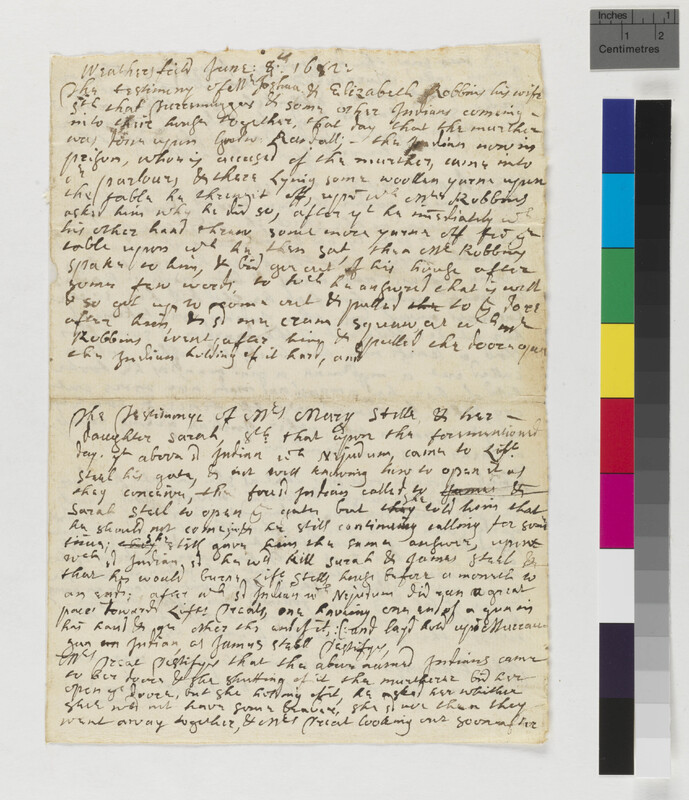 Weathersfeild June: 8th 1682:
The testimony of Mr Joshua & Elizabeth Robbins his wife
sth that & some other Indians coming
into their house together, that day that the murther
was done upon Goodw Randall; the Indian now in
prison, who is accused of the murther, came into
ye parlour, & there lying some woollen yarne upon
the table he threw it off, upon wch Mrs Robbins
asked him why he did so, after yt he immediatly wth
his other hand threw some more yarne off fro ye
table upon wch he then sat, then Mr Robbins
spake to him, & bid get out of his house after
some few words, to wch he answered that is well
& so got up to come out & pulled the to ye dore
after him, & sd one squaw, at wch Mr
Robbins went after him & pulled the doore open
the Indian holding of it hard, and
The Testimonye of Mrs Mary Steele & her
daughter Sarah, sth that upon the forementioned
day, yt above sd Indian wth Nejudum, came to Lift
Steel his gate, & not well knowing how to open it as
they conceive, the foresd Indian called to James &
Sarah Steel to open ye gate, but they told him that
he should not come; he still continuing calling for some
time; they still gave him the same answer, upon
wch sd Indian, sd he will kill Sarah & James Steel &
that he would burne Lift Steels house before a month to
an end; after wch sd Indian wth Nejudum did run a great
pace towards Lifts Treats, one having one end of a gun in
his hand & ye other the end of it, (and layd hold upon
gun an Indian, as James Steel Testifys,
Mrs Treat Testifys that the above named Indians came
to her doore & she shutting of it the murtherer bid her
open ye doore, but she holding of it, he asked her whether
shee would not have some beaver, she sd noe then they
went away together, & Mrs Treat looking out soon after
Inches 1
1 2
Centimetres